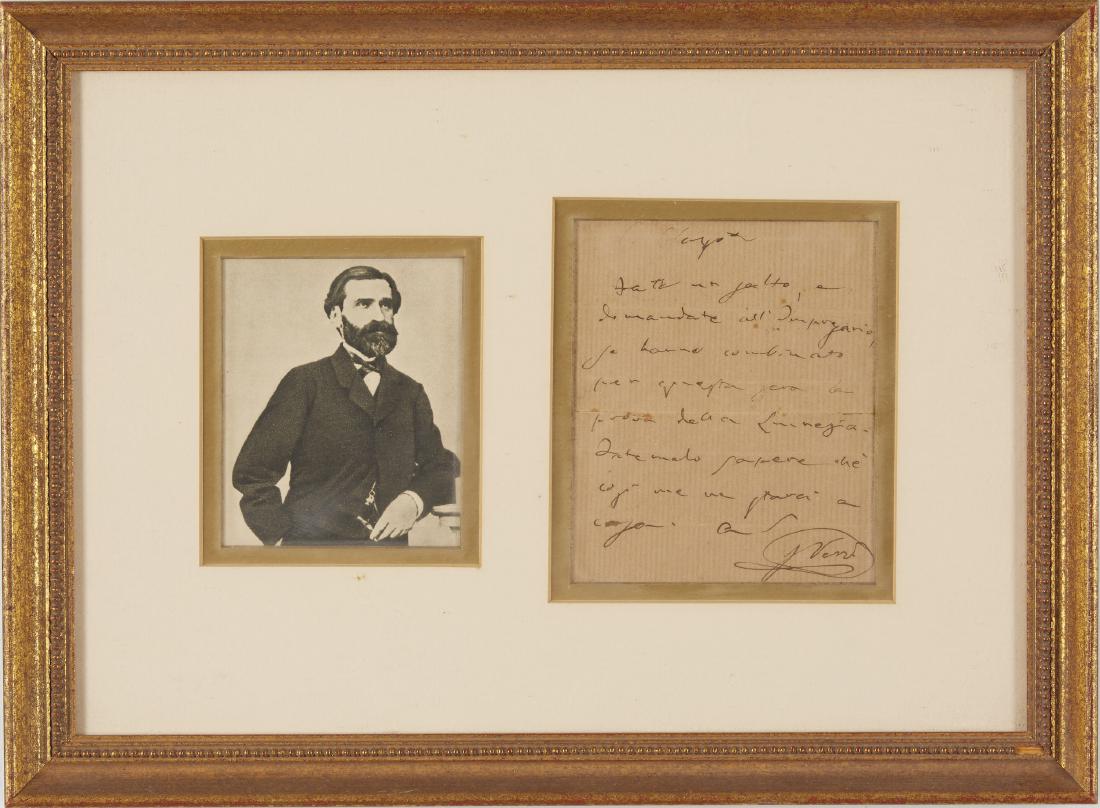 Fate un salto, e
domandate all'Impresario,
se hanno combinato
per questa sera la
prova della Lucrezia.
Fatemelo sapere chè
così me ne starei a
casa.
G Verdi